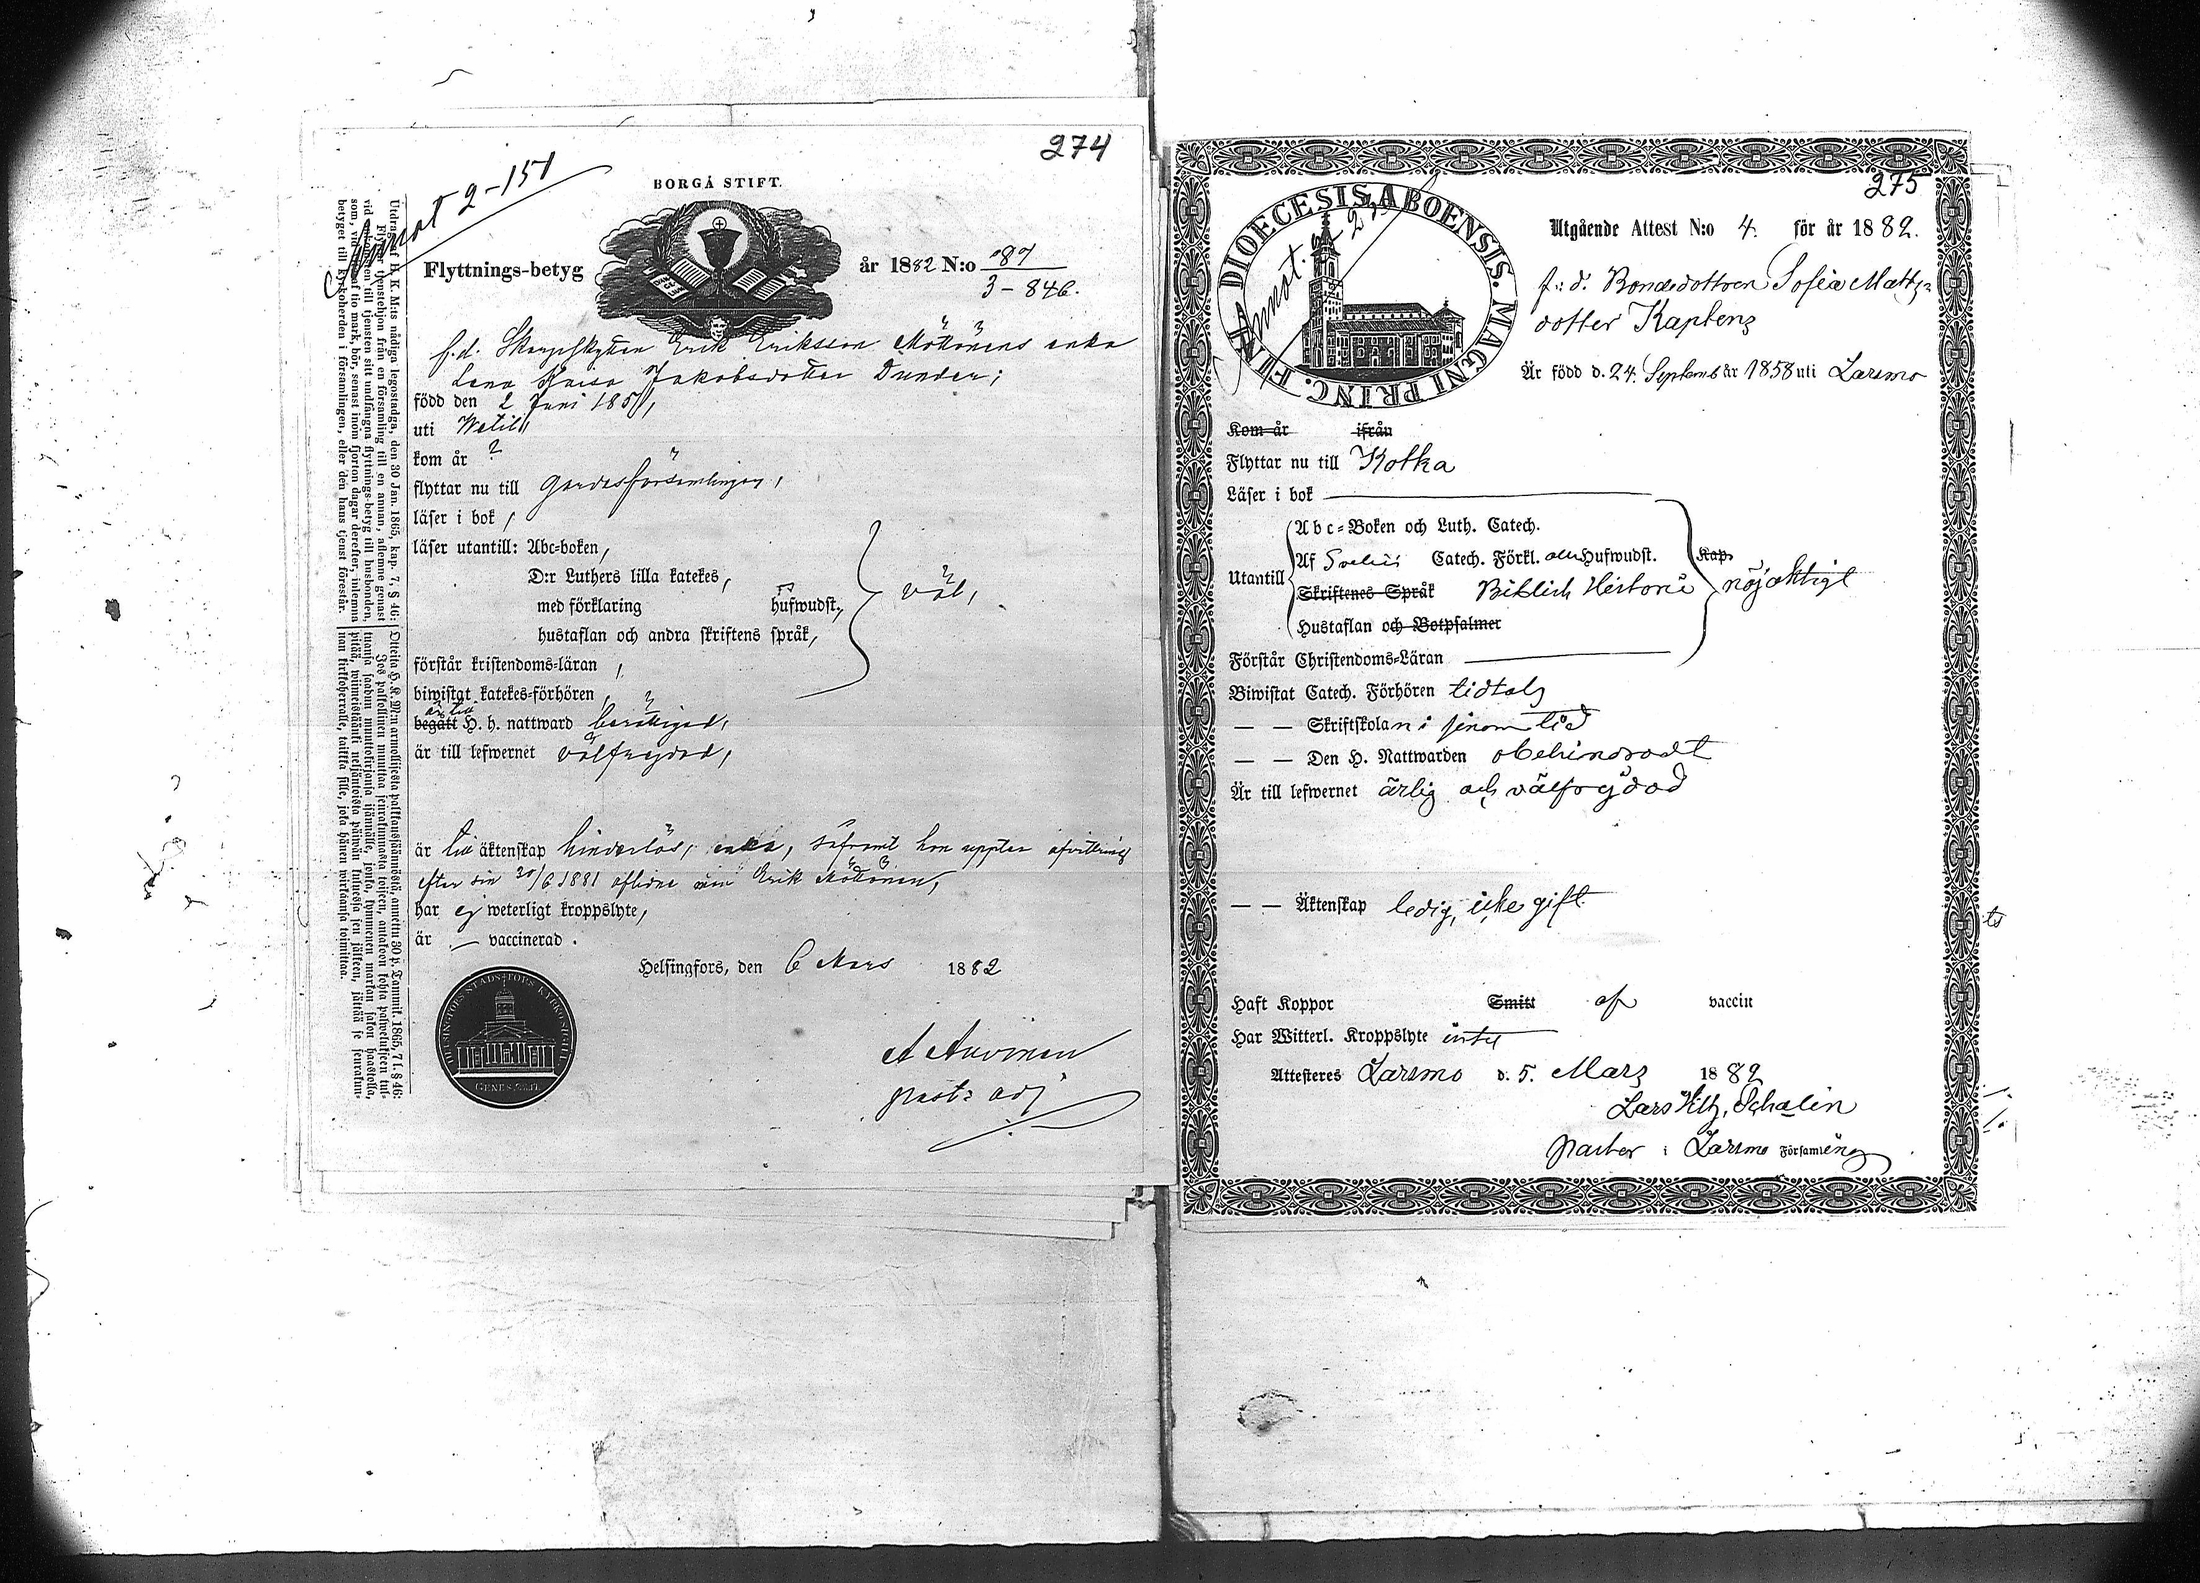 274
Annot 2-151
BORGÅ STIFT.
Flyttnings-betyg år 1882 N:o 87
3-846.
f.d. Skarpskytten Erik Eriksson Mökönens enka
Lena Kaisa Jakobsdotter Dunder;
född den 2 Juni 1851,
uti Wetil,
kom år ?
flyttar nu till Gardesförsamlingen,
läser i bok,
läser utantill: Abc-boken,
D:r Luthers lilla katekes,
med förklaring hufwudst.,
hustaflan och andra skriftens språk,
väl,
förstår kristendoms-läran,
biwistat katekes-förhören,
är till
begått H. h. nattward berättigad,
är till lefwernet välfrejdad,
är till äktenskap hinderlös, enka, såframt hon uppter afvittring
efter sin 30/6 1881 aflidne man Erik Mökönen,
har ej weterligt kroppslyte,
är — vaccinerad.
Helsingfors, den 6 Mars 1882
A Auvinen
past: adj
Utdrag af H. K. M:ts nådiga legostadga, den 30 Jan. 1865, kap. 7, § 46:
Flyttar tjenstehjon från en församling till en annan, aflemne genast
vid ankomsten till tjensten sitt undfångna flyttnings-betyg till husbonden,
som, vid vite af tio mark, bör, senast inom fjorton dagar derefter, inlemna
betyget till kyrkoherden i församlingen, eller den hans tjenst förestår.
Otteita H. K. M:n armollisesta palkkaussäännöstä, annettu 30 p. Tammik. 1865, 7 l. § 46:
Jos palkollinen muuttaa seurakunnasta toiseen, antakoon kohta palwelukseen tul-
tuansa saadun muuttokirjansa isännälle, jonka, kymmenen markan sakon haastolla,
pitää, wiimeistäänki neljäntoista päiwän kuluessa sen jälkeen, jättää se seurakun-
nan kirkkoherralle, taikka sille, joka hänen wirkaansa toimittaa.
275
DIOECESIS ABOENSIS. MAGNI PRINC. FINL.
Annot. 2-2
Utgående Attest N:o 4. för år 1882.
f: d. Bondedottren Sofia Matts-
dotter Kaptens
Är född d. 24. Septemb år 1858 uti Larsmo
Kom år ifrån
Flyttar nu till Kotka
Läser i bok
Utantill
Abc-Boken och Luth. Catech.
Af Svebilii Catech. Förkl. alla Hufwudst. Kap.
Skriftenes Språk Biblisk Historie
Hustaflan och Botpsalmer
nöjaktigt
Förstår Christendoms-Läran
Biwistat Catech. Förhören tidtals
— — Skriftskolan i sinom tid
— — Den H. Nattwarden obehindradt
Är till lefwernet ärlig och välfrejdad
— — Äktenskap ledig, icke gift.
Haft Koppor Smitt af vaccin
Har Witterl. Kroppslyte intet
Attesteres Larsmo d. 5. Mars 1882
Lars Wilh. Schalin
pastor i Larsmo Församling